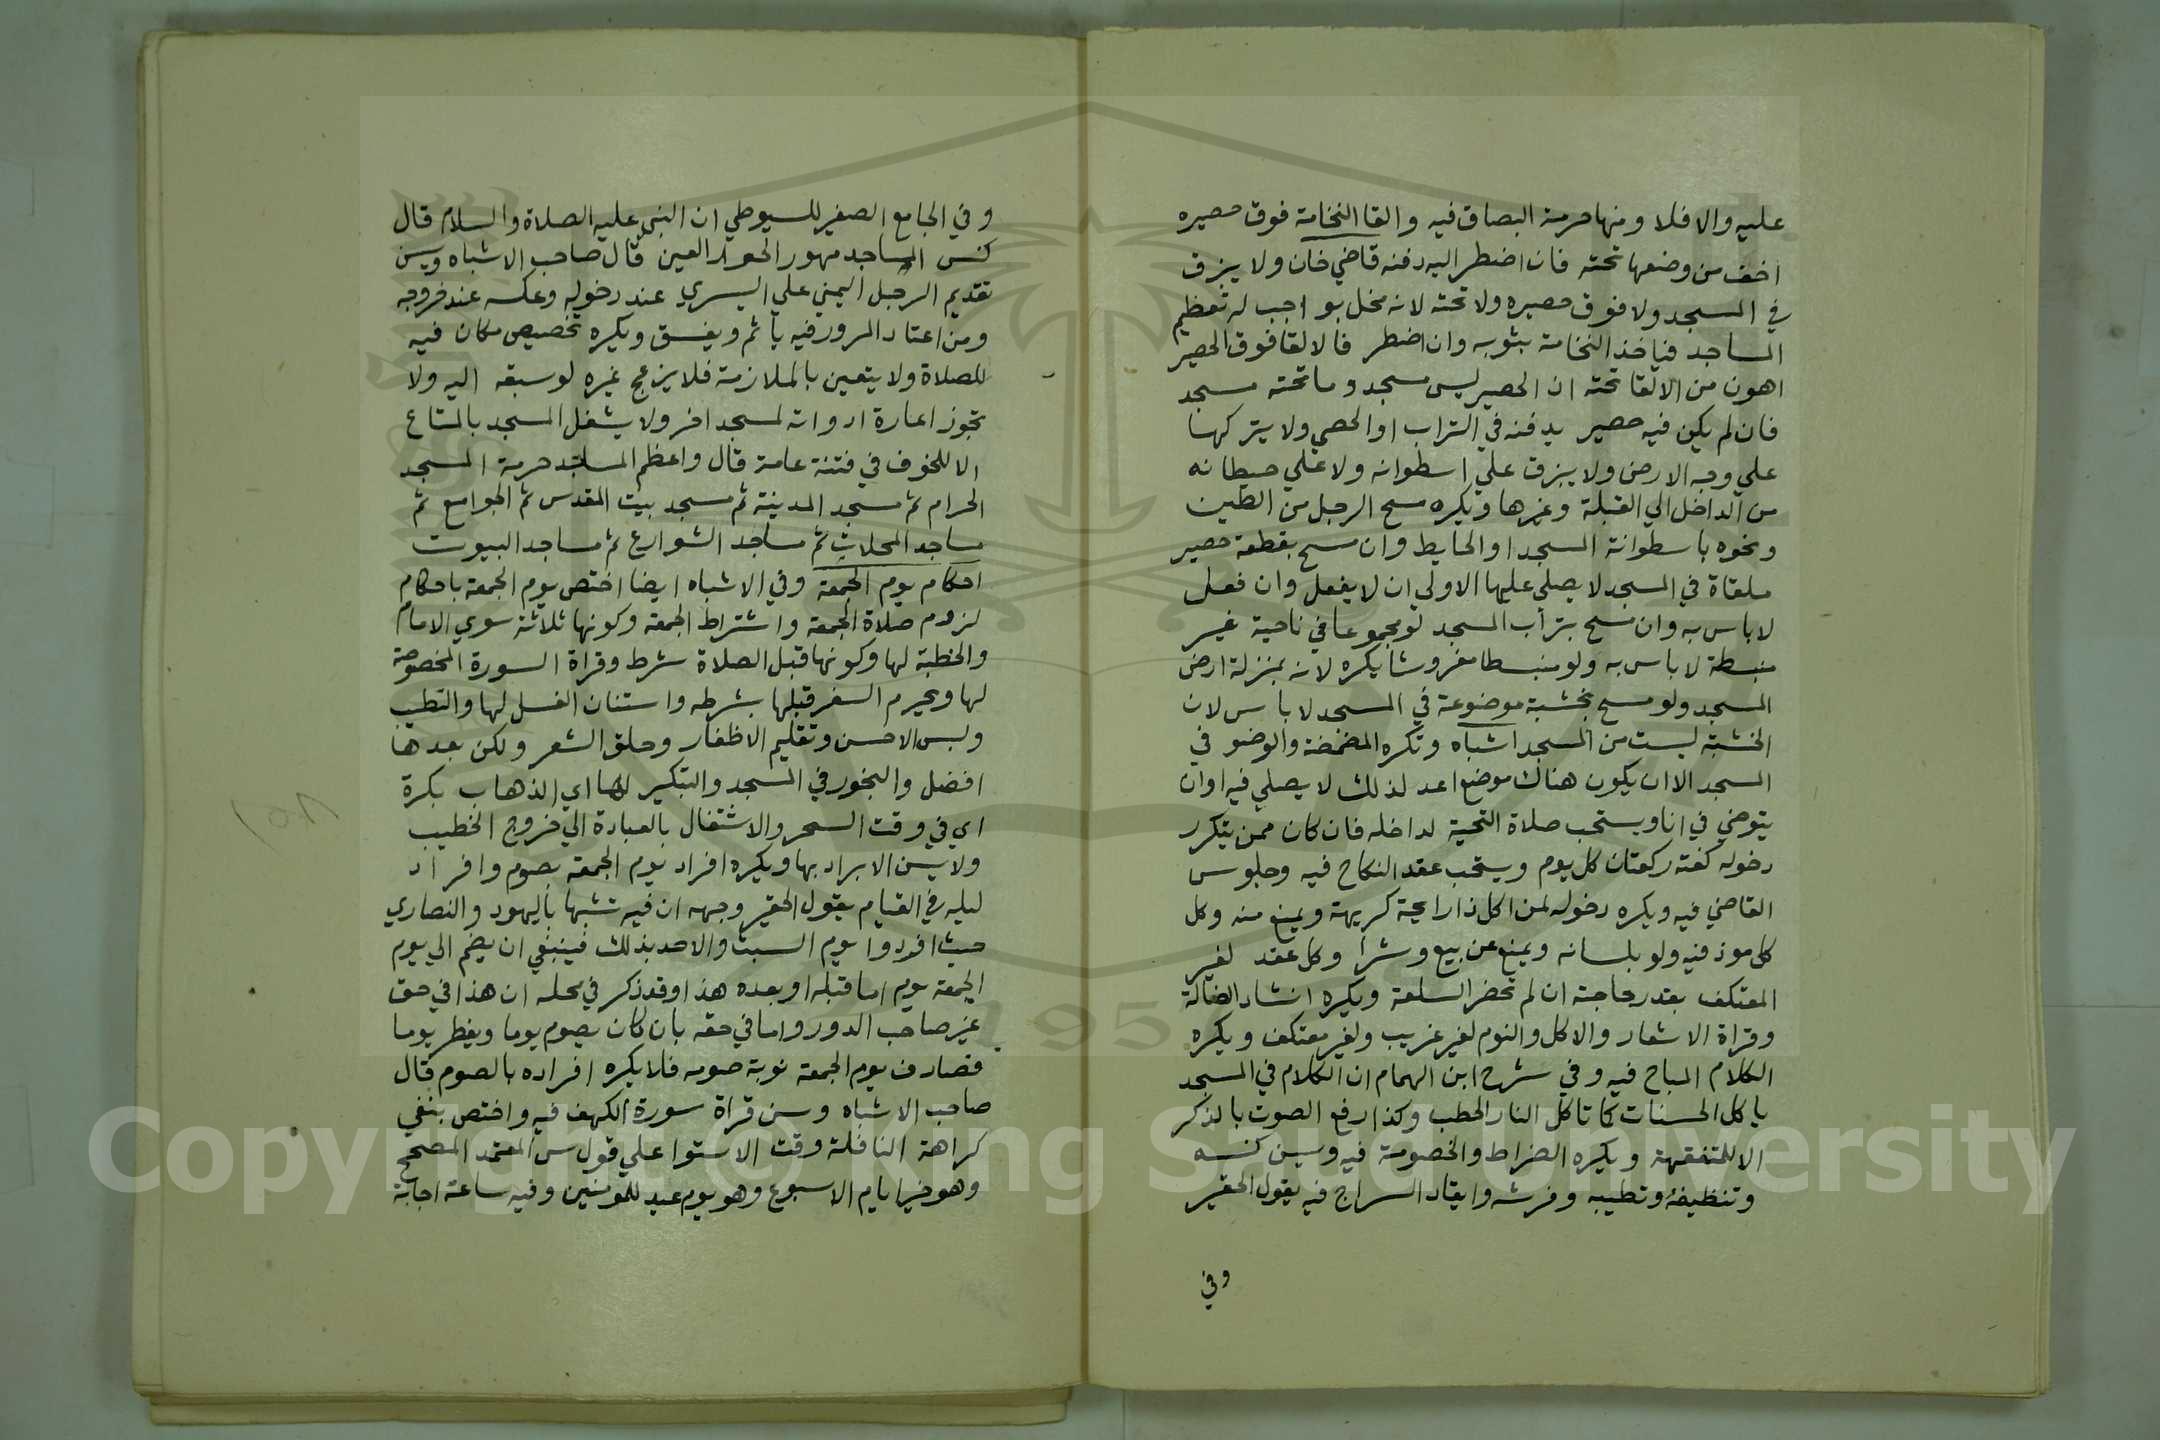 عليه والا فلا ومنها حرمة البصاق فيه والقا النخامة فوق حصيره
اخف من وضعها تحته فان اضطر اليه دفنه قاضي خان ولا يبزق
في المسجد ولا فوق حصيره ولا تحته لانه مخل بواجب له تعظيم
المساجد فياخذ النخامة بثوبه وان اضطر فالالقا فوق الحصير
اهون من الالقا تحته ان الحصير ليس مسجد وما تحته مسجد
فان لم يكن فيه حصير يدفنه في التراب او الحصي ولا يتركها
علي وجه الارض ولا يبزق علي اسطوانه ولا علي حيطانه
من الداخل الي القبلة وغيرها ويكره مسح الرجل من الطين
ونحوه باسطوانة المسجد او الحايط وان مسح بقطعة حصير
ملقاة في المسجد لا يصلي عليها الاولي ان لا يفعل وان فعل
لا باس به وان مسح بتراب المسجد لو مجموعا في ناحية غير
منبسطة لا باس به ولو منبسطا مفروشا يكره لانه بمنزلة ارض
المسجد ولو مسح بخشبة موضوعة في المسجد لا باس لان
الخشبة ليست من المسجد اشباه وتكره المضمضة والوضو في
المسجد الا ان يكون هناك موضع اعد لذلك لا يصلي فيه اوان
يتوضي في انا ويستحب صلاة التحية لداخله فان كان ممن يتكرر
دخوله كفته ركعتان كل يوم ويستحب عقد النكاح فيه وجلوس
القاضي فيه ويكره دخوله لمن اكل ذا رايحة كريهة ويمنع منه وكل
كل موذ فيه ولو بلسانه ويمنع عن بيع وشرا وكل عقد لغير
المعتكف بقدر حاجته ان لم تحضر السلعة ويكره انشاد الضالة
وقراة الاشعار والاكل والنوم لغير غريب ولغير معتكف ويكره
الكلام المباح فيه وفي شرح ابن الهمام ان الكلام في المسجد
ياكل الحسنات كما تاكل النار الحطب وكذا رفع الصوت بالذكر
الا للمتفقهة ويكره الضراط والخصومة فيه وسن كنسه
وتنظيفه وتطيبه وفرشه وايقاد السراج فيه يقول الحقير
وفي
وفي الجامع الصغير للسيوطي ان النبي عليه الصلاة والسلام قال
كنس المساجد مهور الحور العين قال صاحب الاشباه وسن
تقديم الرجل اليمني علي اليسري عند دخوله وعكسه عند خروجه
ومن اعتاد المرور فيه ياثم ويفسق ويكره تخصيص مكان فيه
للصلاة ولا يتعين بالملازمة فلا يزعج غيره لو سبقه اليه ولا
تجوز اعارة ادواته لمسجد اخر ولا يشغل المسجد بالمتاع
الا للخوف في فتنة عامة قال واعظم المساجد حرمة المسجد
الحرام ثم مسجد المدينة ثم مسجد بيت المقدس ثم الجوامع ثم
مساجد المحلات ثم مساجد الشوارع ثم مساجد البيوت
احكام يوم الجمعة وفي الاشباه ايضا اختص يوم الجمعة باحكام
لزوم صلاة الجمعة واشتراط الجمعة وكونها ثلاثة سوي الامام
والخطبة لها وكونها قبل الصلاة شرط وقراة السورة المخصوصة
لها ويحرم السفر قبلها بشرطه واستنان الغسل لها والتطيب
ولبس الاحسن وتقليم الاظفار وحلق الشعر ولكن بعدها
افضل والبخور في المسجد والتبكير لها اي الذهاب بكرة
اي في وقت السحر والاشتغال بالعبادة الي خروج الخطيب
ولا يسن الابراد بها ويكره افراد يوم الجمعة بصوم وافراد
ليله في القيام يقول الحقير وجهه ان فيه تشبها باليهود والنصاري
حيث افردوا يوم السبت والاحد بذلك فينبغي ان يضم الي يوم
الجمعة يوم اما قبله او بعده هذا وقد ذكر في محله ان هذا في حق
غير صاحب الدور واما في حقه بان كان يصوم يوما ويفطر يوما
فصادف يوم الجمعة نوبة صومه فلا يكره افراده بالصوم قال
صاحب الاشباه وسن قراة سورة الكهف فيه واختص بنفي
كراهة النافلة وقت الاستوا علي قول س المعتمد المصحح
وهو خير ايام الاسبوع وهو يوم عيد للمومنين وفيه ساعة اجابة
Copyright © King Saud University
1957